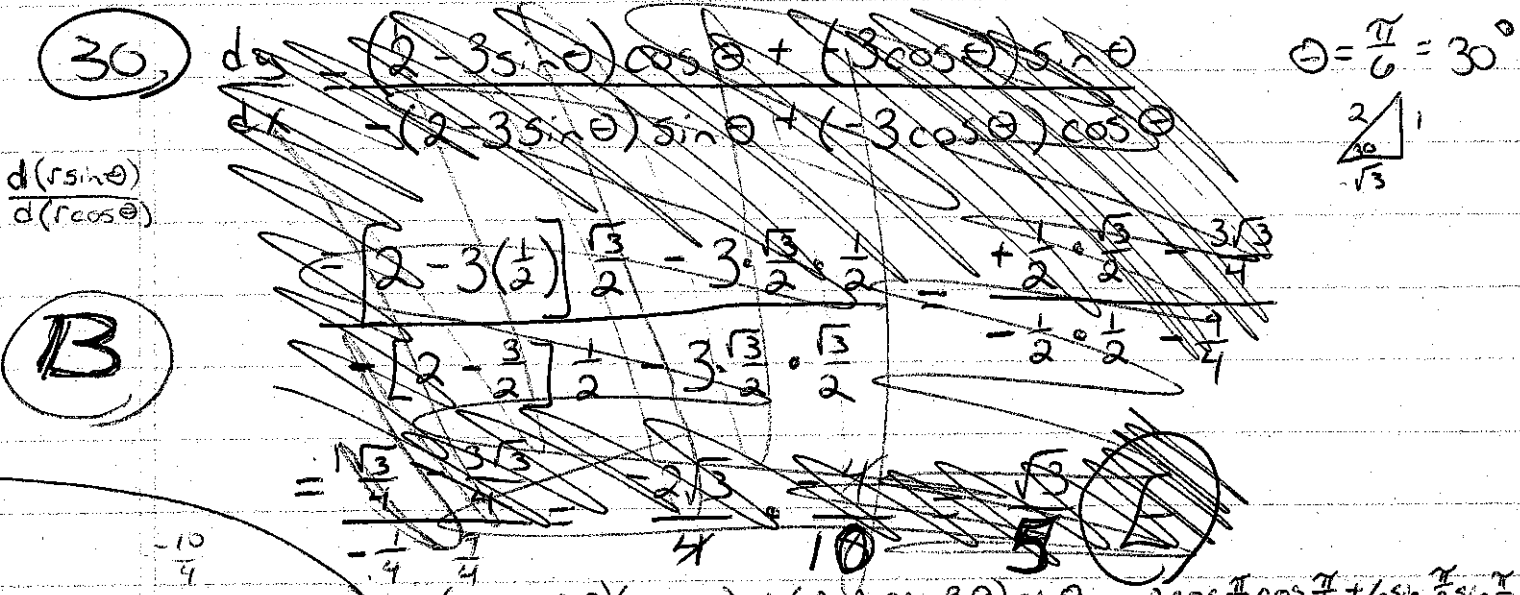 30. dy/dx = ((2 - 3sinθ)cosθ + (-3cosθ)sinθ) / (-(2-3sinθ)sinθ + (-3cosθ)cosθ)
θ = π/6 = 30°
2 1 30 √3
d(rsinθ)/d(rcosθ)
(-[2 - 3(1/2)] √3/2 - 3·√3/2·1/2) / (-[2 - 3/2] 1/2 - 3·√3/2·√3/2) = (+1/2·√3/2 - 3√3/4) / (-1/2·1/2 - 9/4)
B
= (√3/4 - 3√3/4) / (-1/4 - 9/4) = -2√3/4 · -4/10 = √3/5
-10/4